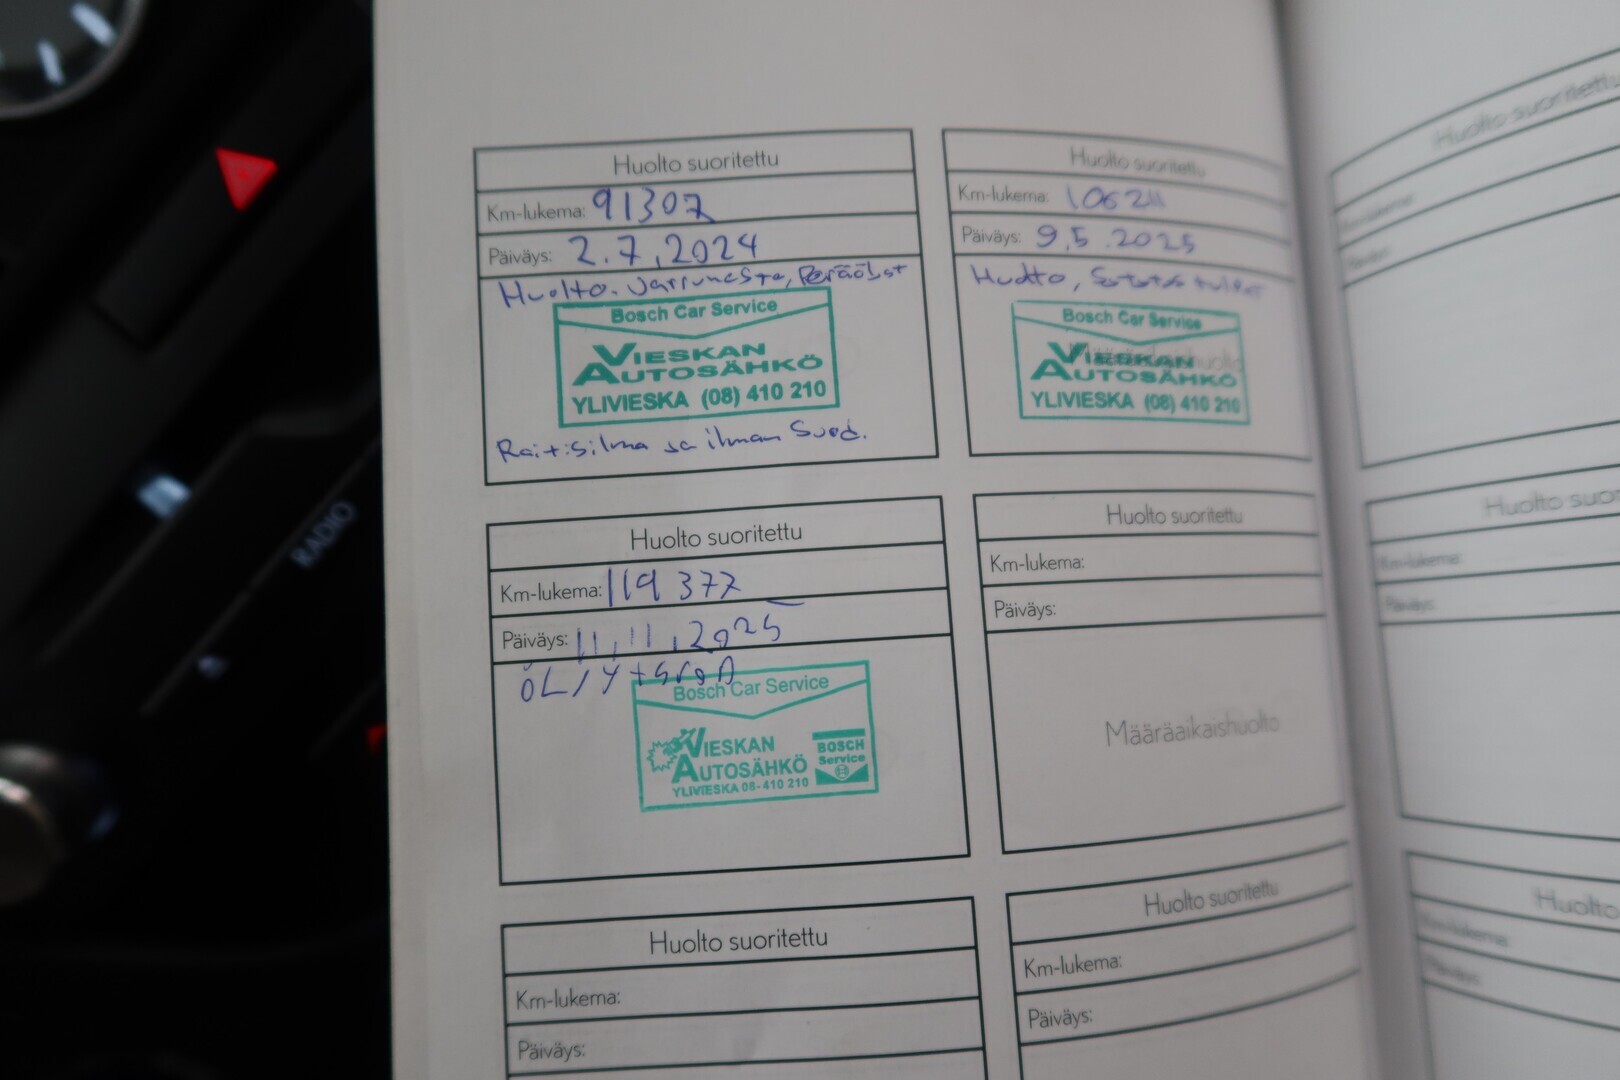 Huolto suoritettu
Km-lukema: 91307
Päiväys: 2.7.2024
Huolto. Jarruneste, Peräöljyt
Bosch Car Service
VIESKAN
AUTOSÄHKÖ
YLIVIESKA (08) 410 210
Raitisilma ja ilman Suod.
Huolto suoritettu
Km-lukema: 106211
Päiväys: 9.5.2025
Huolto,
Bosch Car Service
VIESKAN
AUTOSÄHKÖ
YLIVIESKA (08) 410 210
Huolto suoritettu
Km-lukema: 119 377
Päiväys: 11.11.2025
ÖLJY+SUOD
Bosch Car Service
VIESKAN
AUTOSÄHKÖ
YLIVIESKA 08-410 210
BOSCH
Service
Huolto suoritettu
Km-lukema:
Päiväys:
Määräaikaishuolto
Huolto suoritettu
Km-lukema:
Päiväys:
Huolto suoritettu
Km-lukema:
Päiväys:
Huolto suoritettu
Km-lukema:
Päiväys:
Huolto suo
Km-lukema:
Päiväys:
Huolto
Km-lukema:
Päiväys:
RADIO